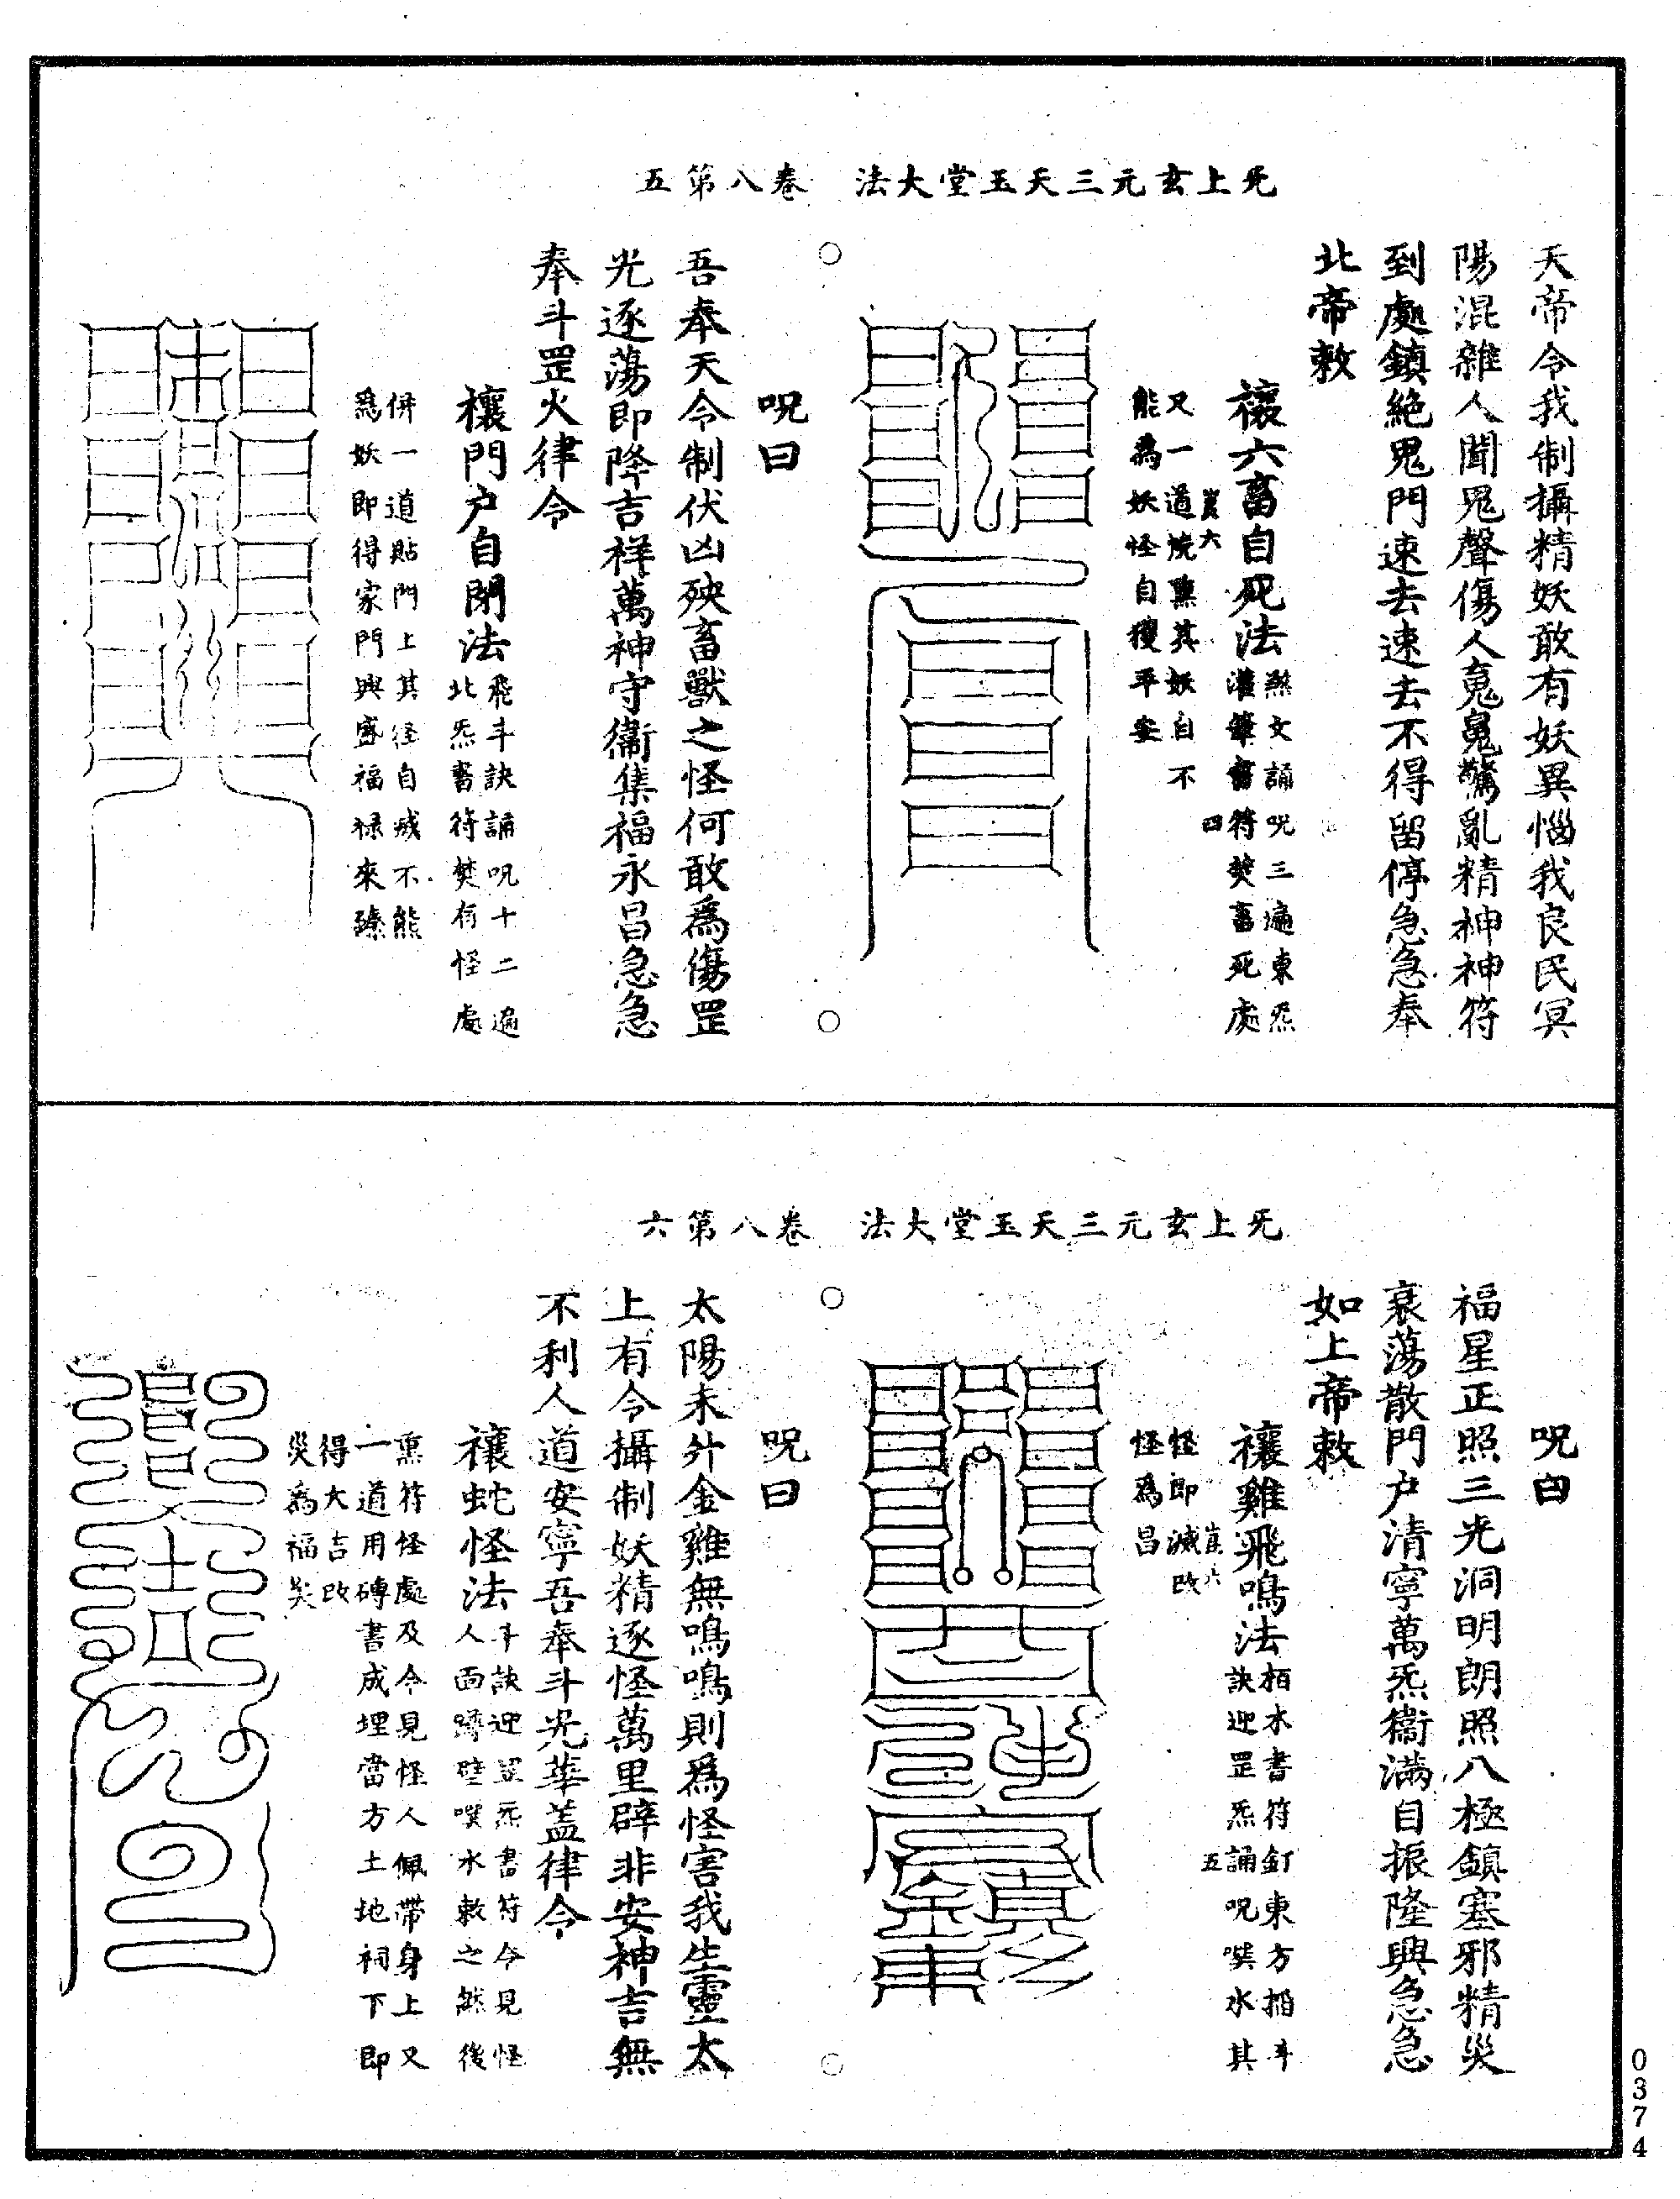 无上玄元三天玉堂大法　卷八第五
天帝令我制攝精妖敢有妖異惱我良民冥
陽混雜人聞鬼聲傷人䰟魄驚亂精神神符
到處鎮絕鬼門速去速去不得留停急急奉
北帝敕
禳六畜自死法
煞文誦呪三遍東炁
灌筆書符焚畜死處
崑六
四
又一道燒熏其妖自不
能為妖怪自獲平安
呪曰
吾奉天令制伏凶殃畜獸之怪何敢為傷罡
光逐蕩即降吉祥萬神守衞集福永昌急急
奉斗罡火律令
禳門户自閉法
飛斗訣誦呪十二遍
北炁書符焚有怪處
併一道貼門上其怪自滅不能
為妖即得家門興盛福祿來臻
无上玄元三天玉堂大法　卷八第六
呪曰
福星正照三光洞明朗照八極鎮塞邪精災
衰蕩散門户清寧萬炁衞滿自振隆興急急
如上帝敕
禳雞飛鳴法
栢木書符釘東方掐斗
訣迎罡炁誦呪噀水其
崑六
五
怪即滅改
怪為昌
呪曰
太陽未升金雞無鳴鳴則為怪害我生靈太
上有令攝制妖精逐怪萬里辟非安神吉無
不利人道安寧吾奉斗光華蓋律令
禳蛇怪法
斗訣迎罡炁書符令見怪
人面蹲壁噀水敕之然後
熏符怪處及令見怪人佩帶身上又
一道用磚書成埋當方土地祠下即
得大吉改
災為福矣
0374